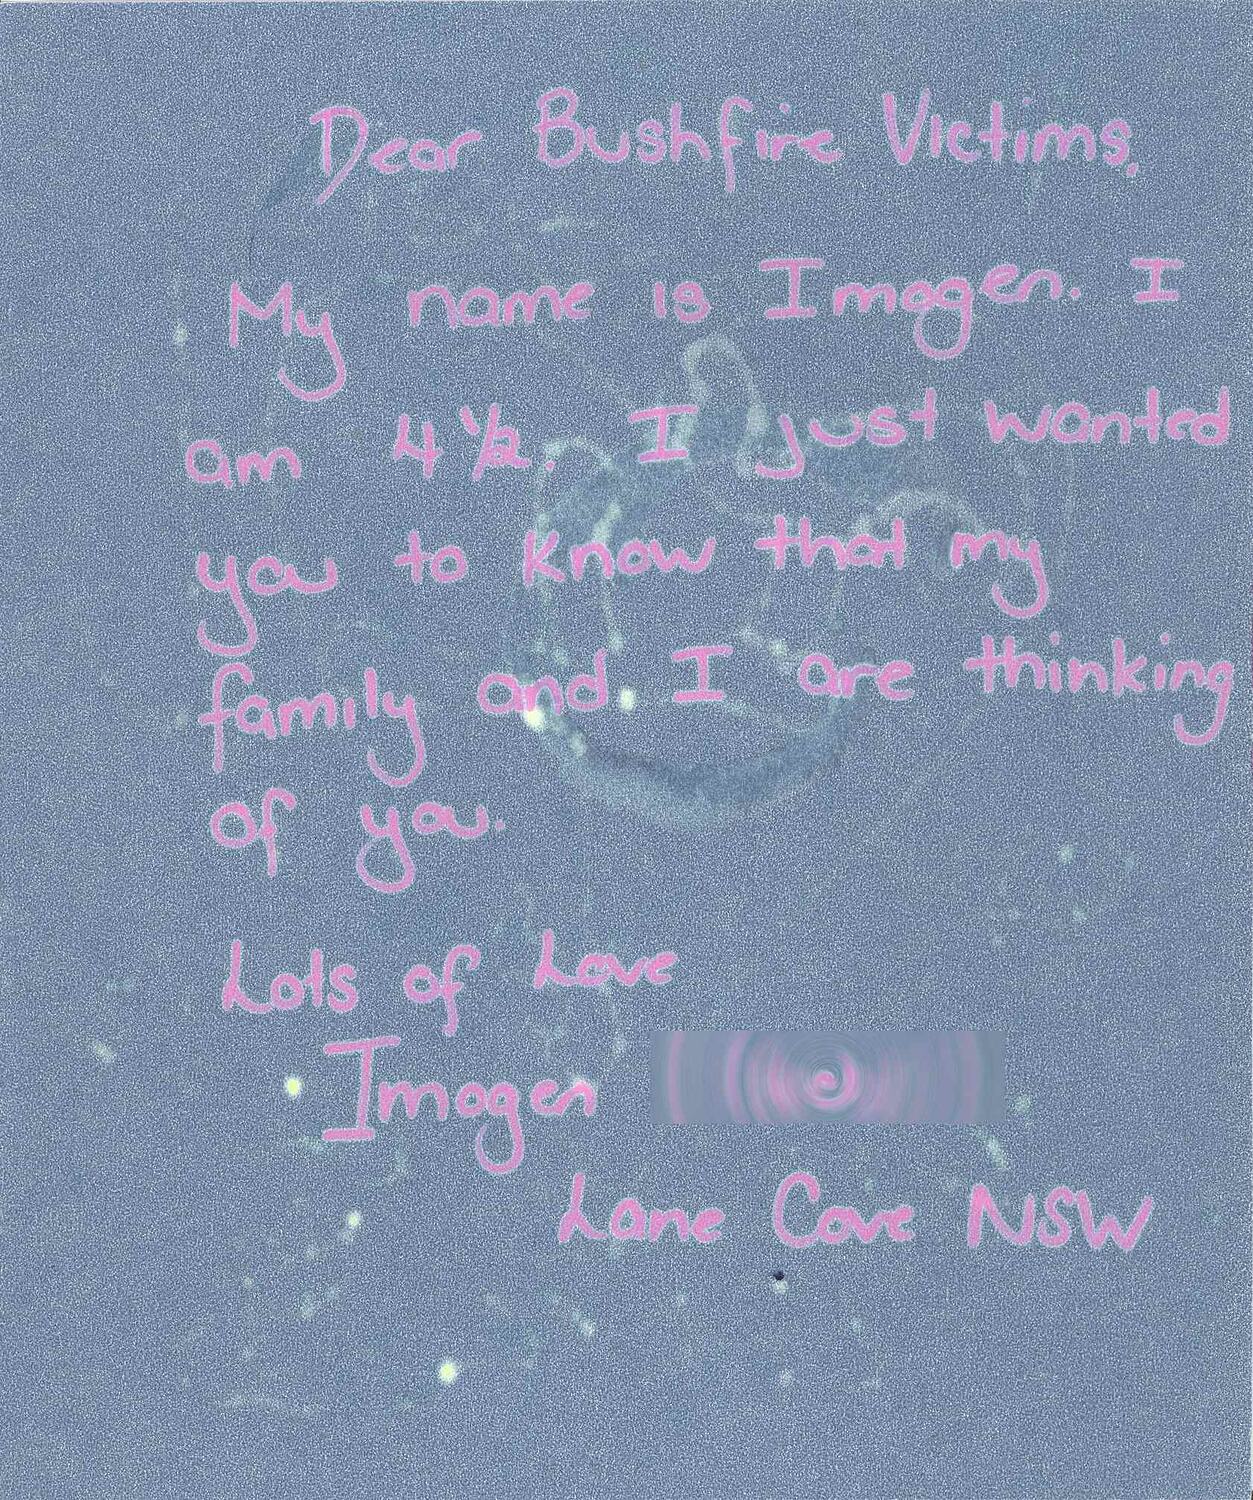 Dear Bushfire Victims,
My name is Imogen. I
am 4 1/2. I just wanted
you to know that my
family and I are thinking
of you.
Lots of Love
Imogen
Lane Cove NSW